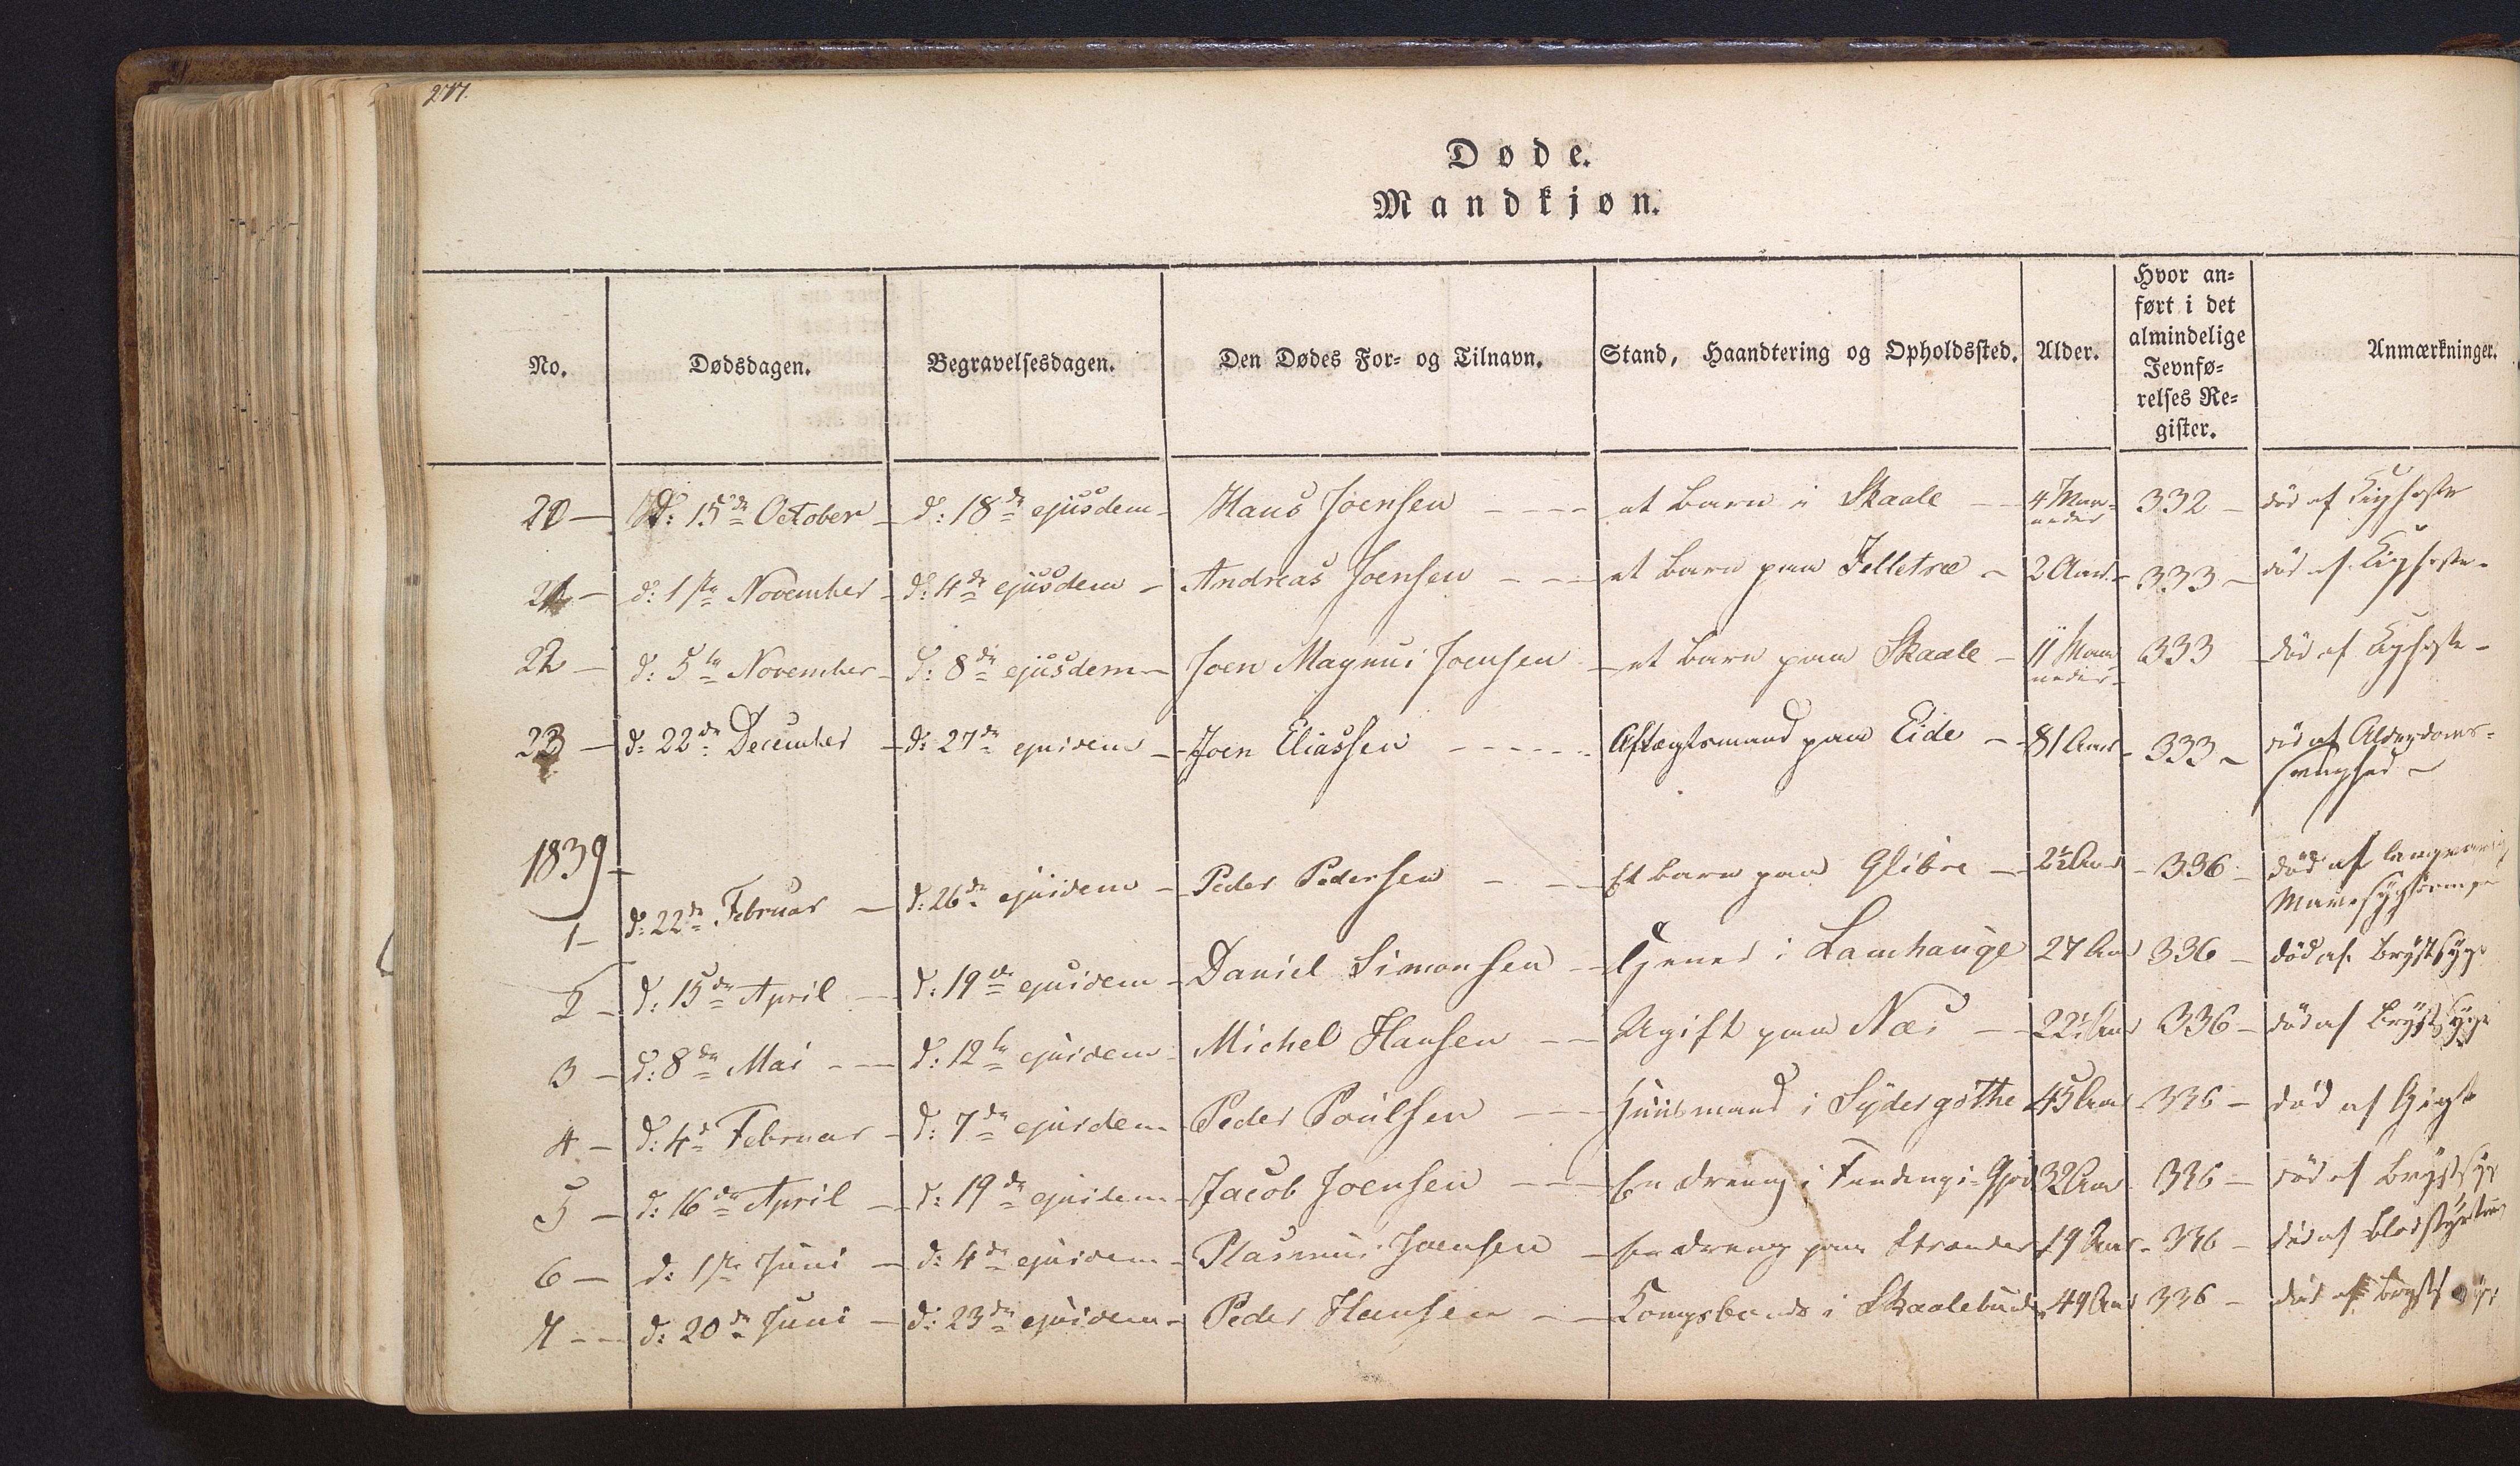 277.
Døde.
Mandkjøn.
No. Dødsdagen. Begravelsesdagen. Den Dødes For- og Tilnavn. Stand, Haandtering og Opholdssted. Alder. Hvor an=
ført i det
almindelige
Jevnfø=
relses Re=
gister. Anmærkninger.
20 — d: 15de October — d: 18de ejusdem — Hans Joensen — et Barn i Skaale — 4 Maa=
neder 332 — død af Kighoste
21 — d: 1ste November — d: 4de ejusdem — Andreas Joensen — et Barn paa Selletræ — 2 Aar — 333 — død af Kighoste —
22 — d: 5te November — d: 8de ejusdem — Joen Magnus Joensen — et Barn paa Skaale — 11 Maa
neder — 333 — død af Kighoste —
23 — d: 22de December — d: 27de ejusdem — Joen Eliassen — Aftægtsmand paa Eide — 81 Aar — 333 — død af Alderdoms=
svaghed —
1839 —
1 — d: 22de Februar — d: 26de ejusdem — Peder Pedersen — Et Barn paa Glibre — 2½ Aar — 336 — død af langvarig
Mavesygdomme
2 — d: 15de April — d: 19de ejusdem — Daniel Simonsen — Tjener i Lamhauge 27 Aar 336 — død af Brystsyge
3 — d: 8de Mai — d: 12te ejusdem — Michel Hansen — Ugift paa Næs — 22½ Aar 336 — død af Brystsyge
4 — d: 4de Februar — d: 7de ejusdem — Peder Poulsen — Huusmand i Sydergøthe 45 Aar — 336 — død af Gigt
5 — d: 16de April — d: 19de ejusdem — Jacob Joensen — En Dreng i Fundings-Gjov 32 Aar — 336 — død af Brystsyge
6 — d: 1ste Juni — d: 4de ejusdem — Rasmus Joensen — En Dreng paa Strænder 19 Aar — 336 — død af Blodstyrtning
7 — d: 20de Juni — d: 23de ejusdem — Peder Hansen — Kongsbonde i Skaalebund 49 Aar 336 — død af Brystsyge